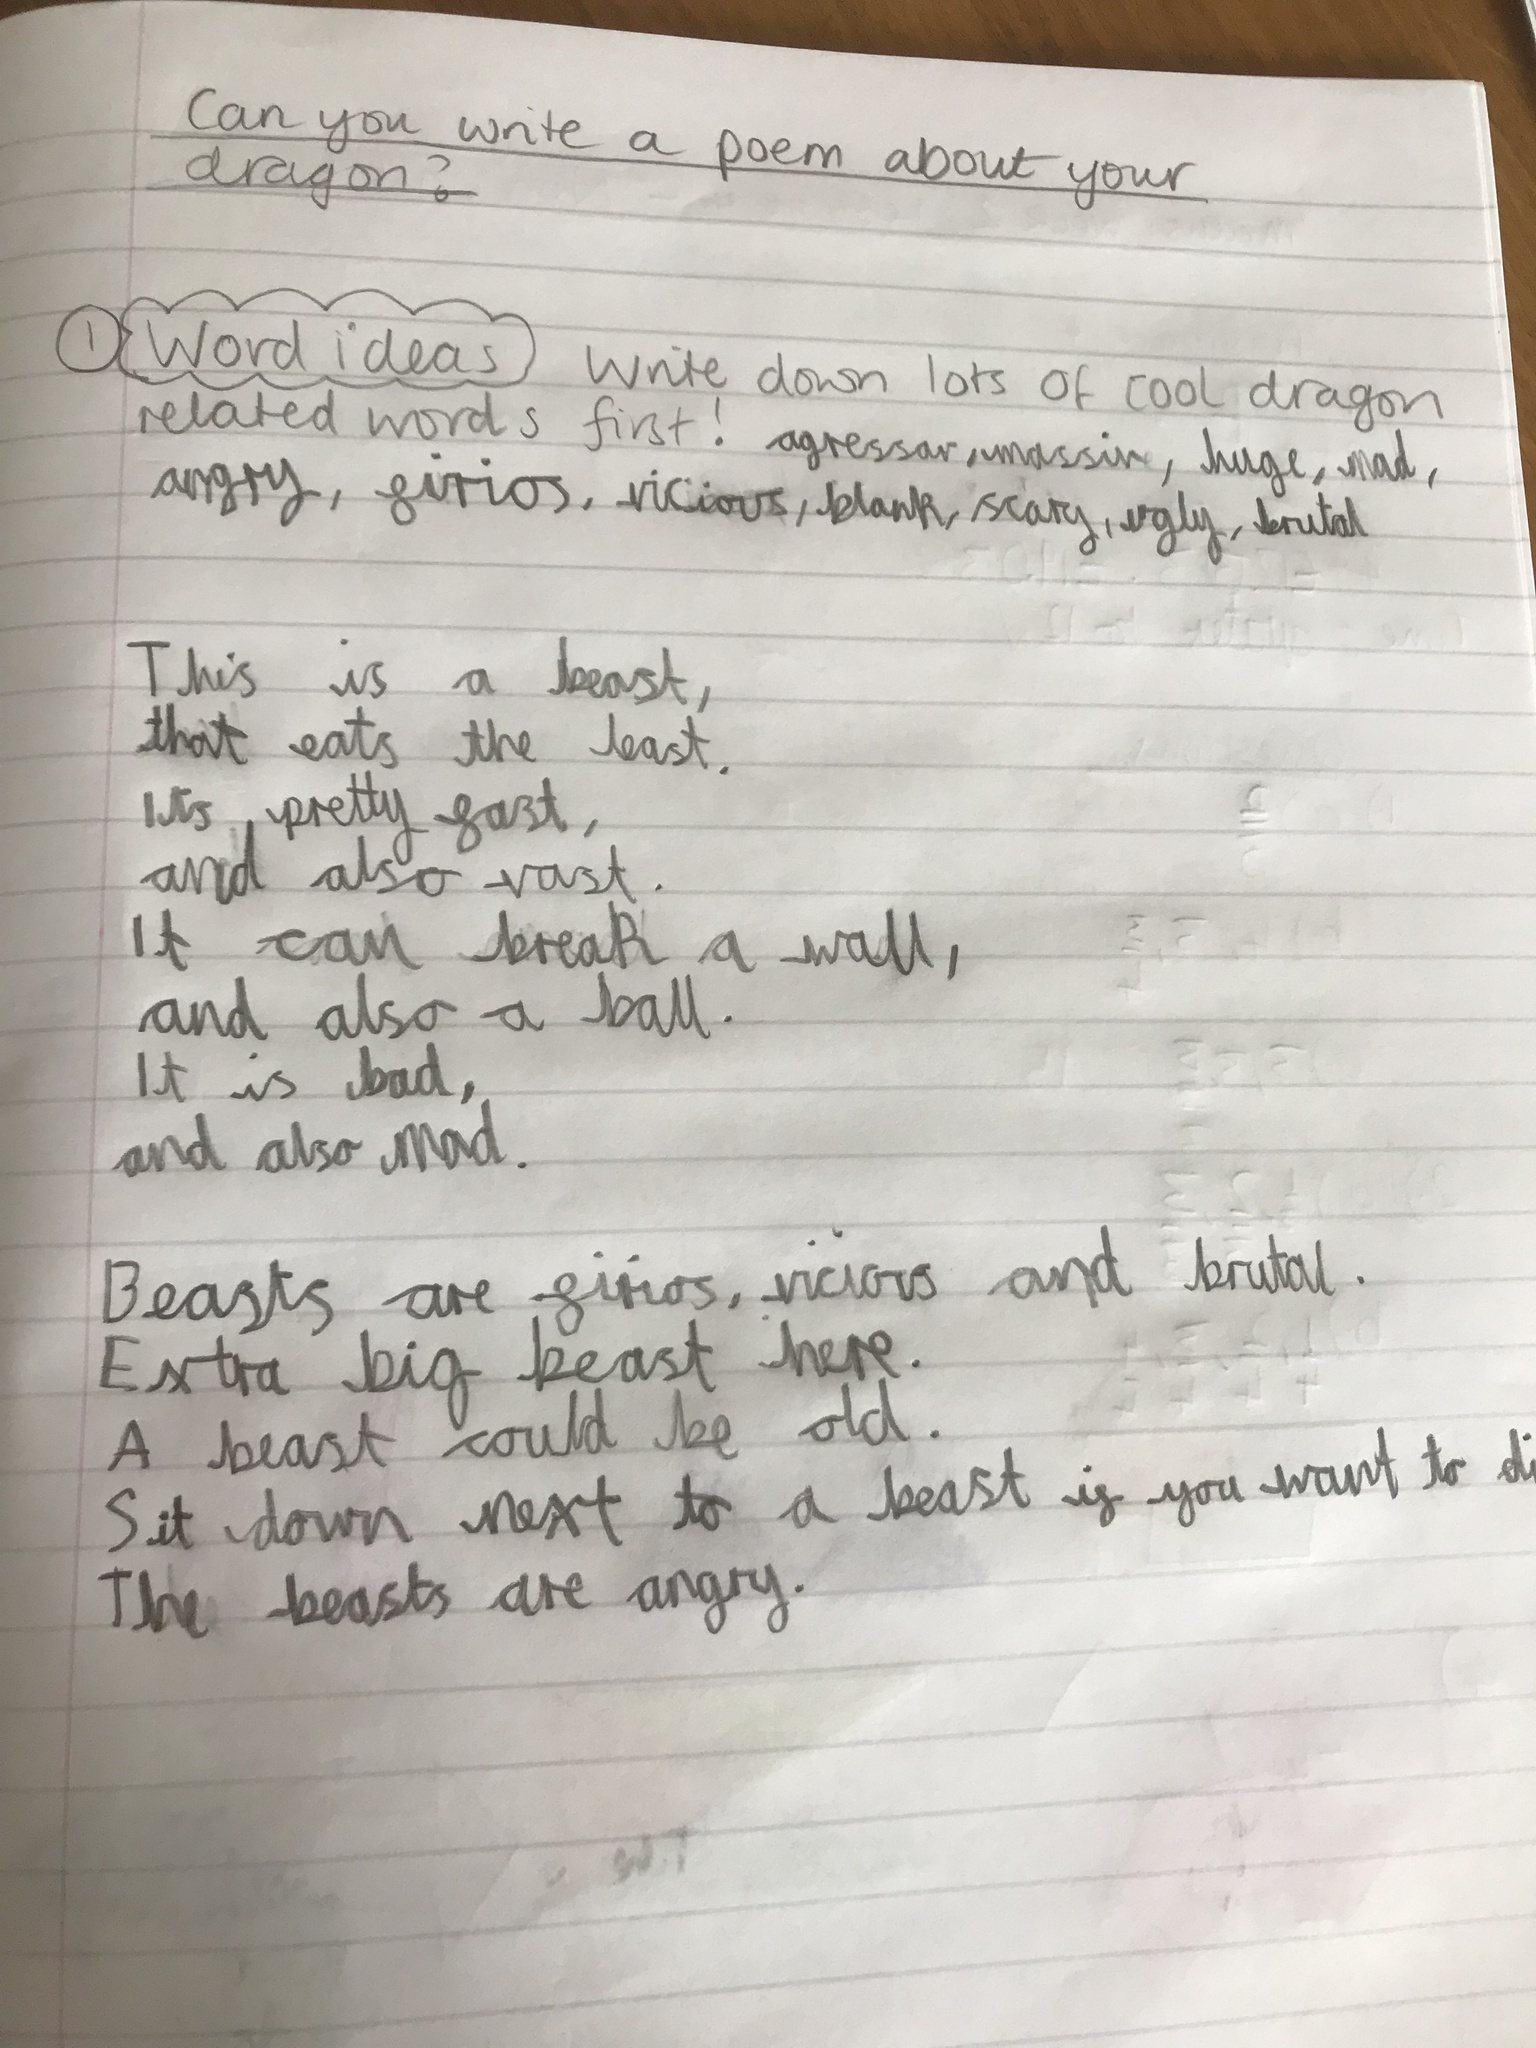 Can you write a poem about your
dragon?
1 Word ideas Write down lots of cool dragon
related words first! agressar, massiv, huge, mad,
angry, firios, vicious, blank, scary, ugly, brutal
This is a beast,
that eats the least.
Its pretty fast,
and also vast.
It can break a wall,
and also a ball.
It is bad,
and also mad.
Beasts are firios, vicious and brutal.
Extra big beast here.
A beast could be old.
Sit down next to a beast if you want to di
The beasts are angry.